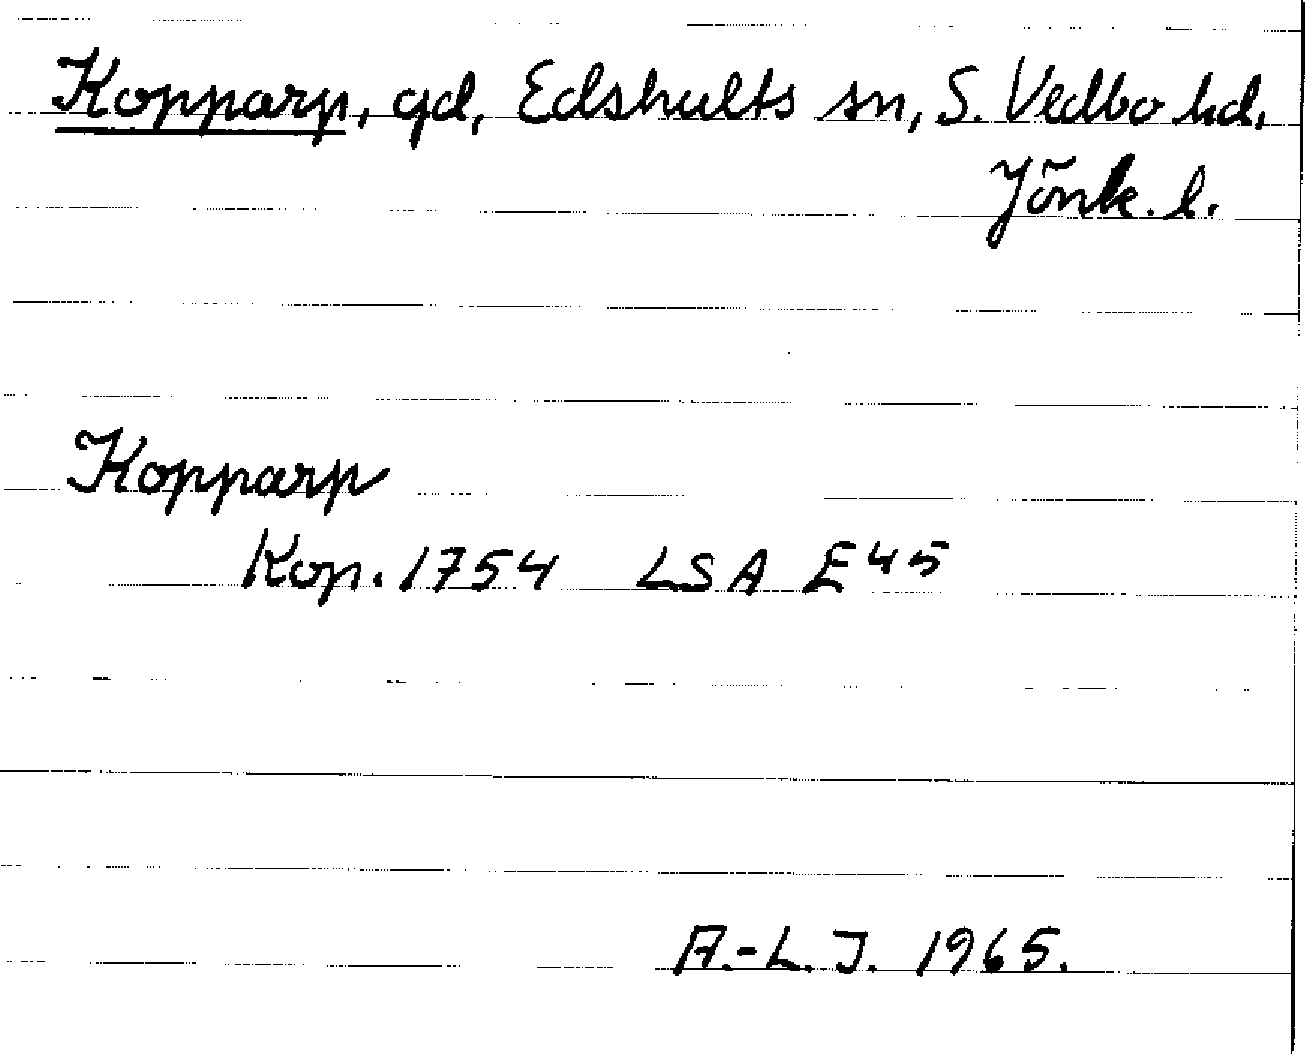 Kopparp, gd, Edshults sn, S. Vedbo hd,
Jönk. l.
Kopparp
Kop. 1754 LSA E45
A.-L. J. 1965.